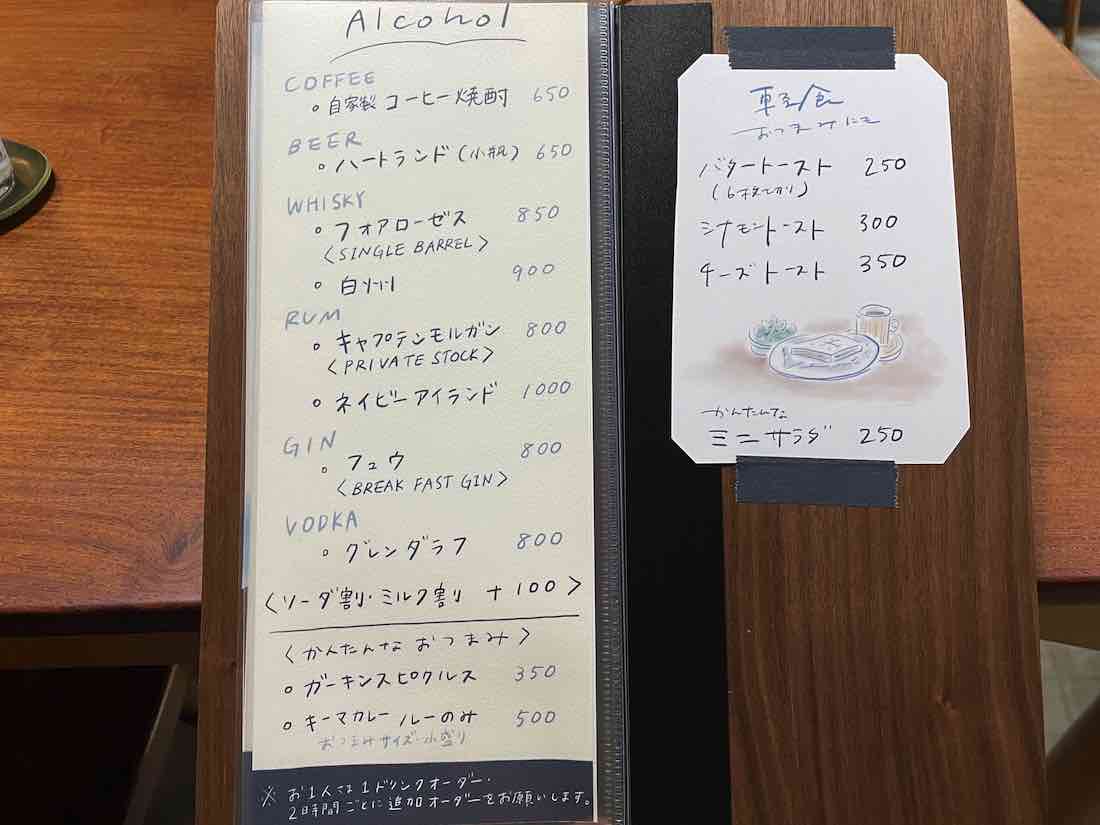 Alcohol
COFFEE
• 自家製 コーヒー焼酎 650
BEER
• ハートランド (小瓶) 650
WHISKY
• フォアローゼス 850
〈SINGLE BARREL〉
• 白州 900
RUM
• キャプテンモルガン 800
〈PRIVATE STOCK〉
• ネイビーアイランド 1000
GIN
• フュウ 800
〈BREAK FAST GIN〉
VODKA
• グレンダラフ 800
〈ソーダ割り・ミルク割り +100〉
〈かんたんな おつまみ〉
• ガーキンスピクルス 350
• キーマカレー ルーのみ 500
おつまみサイズ 小盛り
※ お1人さま1ドリンクオーダー・
2時間ごとに追加オーダーをお願いします。
軽食
おつまみにも
バタートースト 250
(6枚切り)
シナモントースト 300
チーズトースト 350
かんたんな
ミニサラダ 250